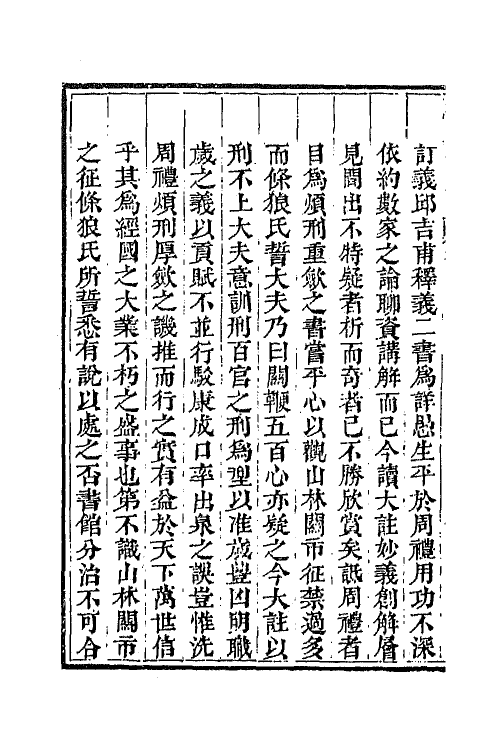 訂義邱吉甫釋義二書為詳愚生平於周禮用功不深
依約數家之論聊資講解而已今讀大註妙義創解層
見間出不特疑者析而奇者已不勝欣賞矣詆周禮者
目為煩刑重斂之書嘗平心以觀山林關市征禁過多
而條狼氏誓大夫乃曰關鞭五百心亦疑之今大註以
刑不上大夫意訓刑百官之刑為型以准歲豈因明職
歲之義以貢賦不並行駁康成口率出泉之誤豈惟洗
周禮煩刑厚斂之譏推而行之實有益於天下萬世信
乎其為經國之大業不朽之盛事也第不識山林關市
之征條狼氏所誓悉有說以處之否書館分治不可合